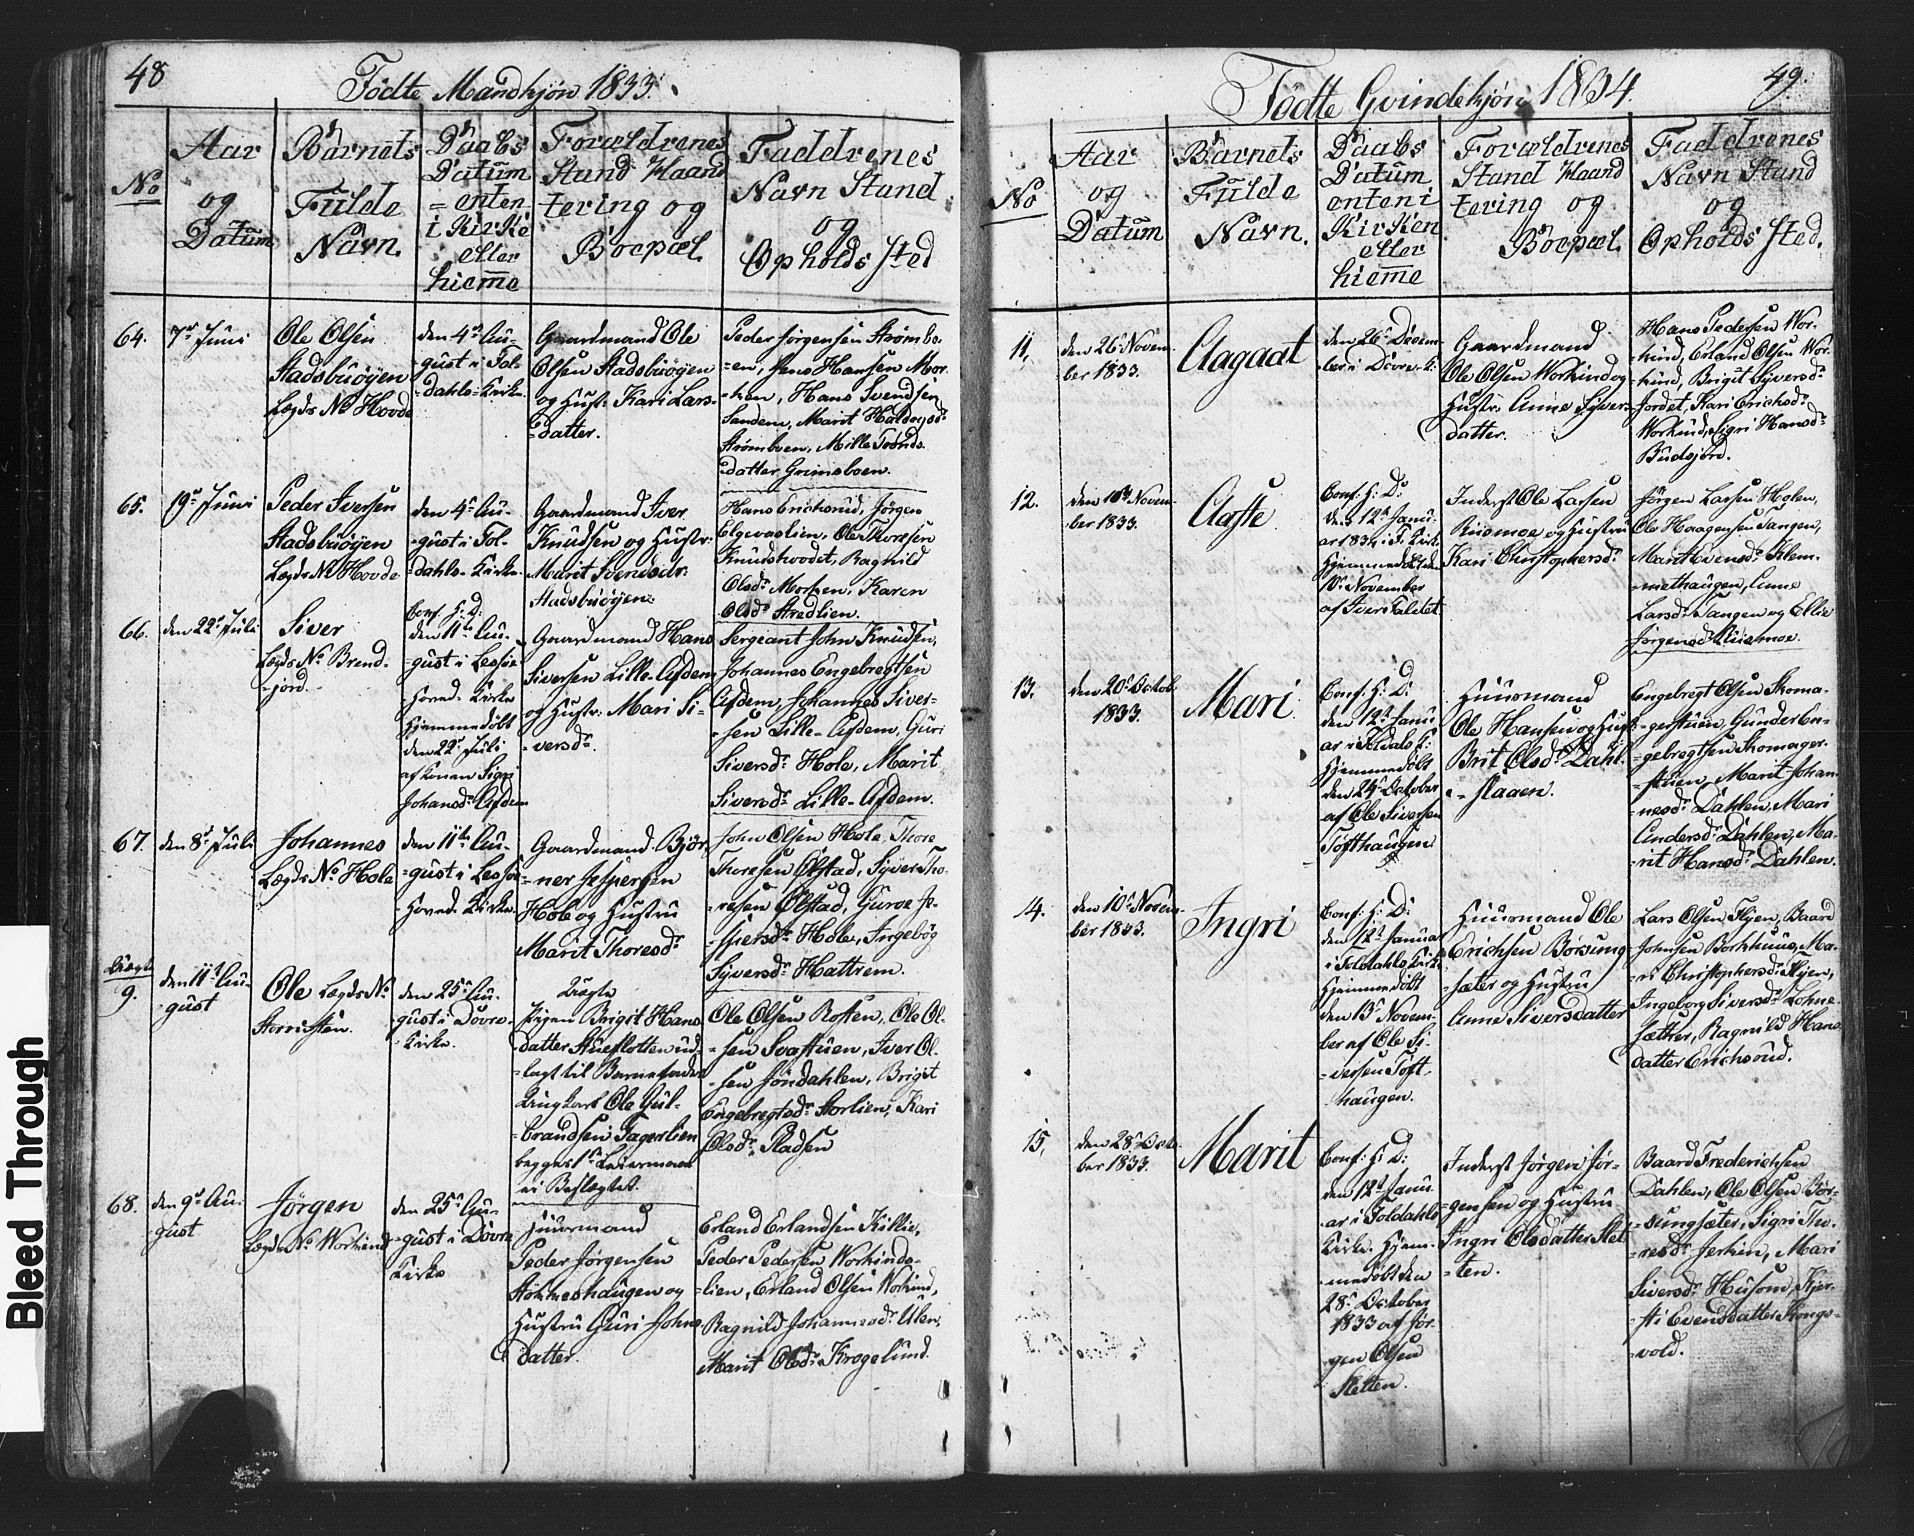 48
Fødte Mandkjøn 1833.
No
Aar
og
Datum
Barnets
Fulde
Navn.
Daabs
Datum
enten
i Kirke
eller
hiem̅e
Forældrenes
Stand Haand
tering og
Boepæl.
Faddrenes
Navn Stand
og
Opholds Sted
64.
7de Juni
Ole Olsen
Stadsbuøyen
Lægds No Hovde
den 4de Au-
-gust i Fol-
dahls Kirke
Gaardmand Ole
Olsen Stadsbuøyen
og Hust. Kari Lars-
datter.
Peder Jørgensen Strømbo-
-en, Jens Hansen Mor-
-ken, Hans Svendsen
Sandem, Marit Haldosd.
Strømboen, Mille Trønds
datter Grimsboen.
65.
19de Juni
Peder Iversen
Stadsbuøyen
Lægds No Hovde
den 4de Au-
-gust i Fol-
-dahls-Kirke.
Gaardmand Iver
Knudsen og Hustr:
Marit Svendsdr.
Stadsbuøyen.
Hans Erichsrud, Jørgen
Elgevaslien, Ole Thoresen
Knudshovdet, Ragnild
Olsdr. Morken, Karen
Olsdr. Stredlien.
66.
den 22de Juli
Siver
Lægds No. Brend-
-jord.
Conf. H: D:
den 11te Au-
-gust i Lessøe
Hoved-Kirke
Hjemmedøbt
den 22de Juli
af Konen Sigri
Johansdr. Afdem
Gaardmand Hans
Siversen Lille-Afdem
og Hustr. Mari Si-
-versdr.
Sergeant John Knudsen,
Johannes Engebregtsen
Afdem, Johannes Siver-
-sen Lille-Afdem, Guri
Siversdr. Hole, Marit
Siversdr. Lille-Afdem.
67.
den 8de Juli
Johannes
Lægds No. Hole
den 11te Au-
-gust i Lessøe
Hoved-Kirke.
Gaardmand Bjør-
-ner Jespersen
Hole og Hustru
Marit Thoresdr.
John Olsen Hole, Thore
Thoresen Ølstad, Syver Tho-
-resen Ølstad, Guroe Je-
-spersdr. Hole, Ingebøg
Syversdr. Hattrem.
Uægte
9.
den 11te Au-
gust
Ole Lægds No
Storristen.
den 25de Au-
gust i Dovre-
-Kirke.
Uægte
Pigen Brigit Hans
datter Stueflotten ud-
-lagt til Barnefader
Ungkarl Ole Gul-
-brandsen Fagerlien
begges 1te Leiermaal
ei Beslægtet.
Ole Olsen Rosten, Ole Ol-
-sen Svastuen, Iver Ol-
-sen Jøndahlen, Brigit
Engebregtsdr. Storlien, Kari
Olsdr. Pladsen
68.
den 9de Au-
gust
Jørgen
Lægds No. Workind
den 25de Au-
-gust i Dovre
Kirke
Huusmand
Peder Jørgensen
haugen og
Hustru Guri Johns
datter.
Erland Erlandsen Killie,
Peder Pedersen Workinds-
-lien, Erland Olsen Workind,
Ragnild Johannesdr. Ulen,
Marit Olsdr. Krogelund.
49.
Fødte Qvindekjøn 1834.
No
Aar
og
Datum
Barnets
Fulde
Navn.
Daabs
Datum
enten i
Kirken
eller
hiem̅e
Forældrenes
Stand Haand
tering og
Boepæl.
Faddrenes
Navn Stand
og
Opholds Sted.
11,
den 26de Novem-
ber 1833.
Aagaat
den 26de Decem-
ber i Dovre-K:
Gaardmand
Ole Olsen Workind og
Hustr. Anne Sivers
datter.
Hans Pedersen Wor-
-kind, Erland Olsen Wor-
-kind, Brigit Syversdr.
Jordet, Kari Erichsdr.
Workind, Sigri Hansdr.
Budsjord.
12.
den Novem-
ber 1833.
Aaste
Conf. H: D:
den 12te Janu-
ar 1834 i F: Kirk.
Hjemmedøbt den
November
af Iver Faldet
Inderst Ole Larsen
Ruismoe og Hustru
Kari Christophersdr.
Jørgen Larsen Holen,
Ole Haagensen Tangen,
Marit Evensdr. Klem-
-methaugen, Anne
Larsdr. Tangen og Ellie
Jørgensdr. Ruismoe.
13.
den 20de Octob.
1833.
Mari
Conf: H: D:
den 12te Janu
ar i Foldals K:
Hjemmedøbt
den 24de October
af Ole Siversen
Tofthaugen
Huusmand
Ole Hansen og Hust
Brit Olsdr. Dahl-
-slaaen.
Engebregt Olsen Skoma-
-gerstuen, Gunder En-
gebregtsen Skomager-
stuen, Marit Johan-
nesdr. Dahlen, Mari
Andersdr. Dahlen, Ma-
rit Hansdr. Dahlen.
14.
den 10de Novem-
ber 1833.
Ingri
Conf: H: D:
den 12te Januar
i Foldahls Kirke
Hjemmedøbt
den 13de Novem-
ber af Ole Si-
versen Toft-
haugen.
Huusmand Ole
Erichsen Børsung-
-sæter og Hustru
Anne Siversdatter
Lars Olsen Flyen, Baard
Johnsen Borkhuus, Ma-
ri Christophersdr. Flyen,
Ingeborg Siversdr. Lohne-
Sætter, Ragnild Hans
datter Erichsrud.
15,
den 28de Octo-
ber 1833.
Marit
Conf: H: D:
den 12te Janu-
ar i Foldahls
Kirke. Hjem-
-medøbt den
28de October
1833 af Jør-
gen Olsen
Sletten.
Inderst Jørgen Jør-
-gensen og Hustru
Ingri Olsdatter Slet
-ten.
Baard Frederichsen
Dahlen, Ole Olsen Bør-
-sungsæter, Sigri Tho-
-resdr. Jerkin, Mari
Siversdr. Husom, Kjer-
-sti Evensdatter Kongs-
-vold.
Bleed Through